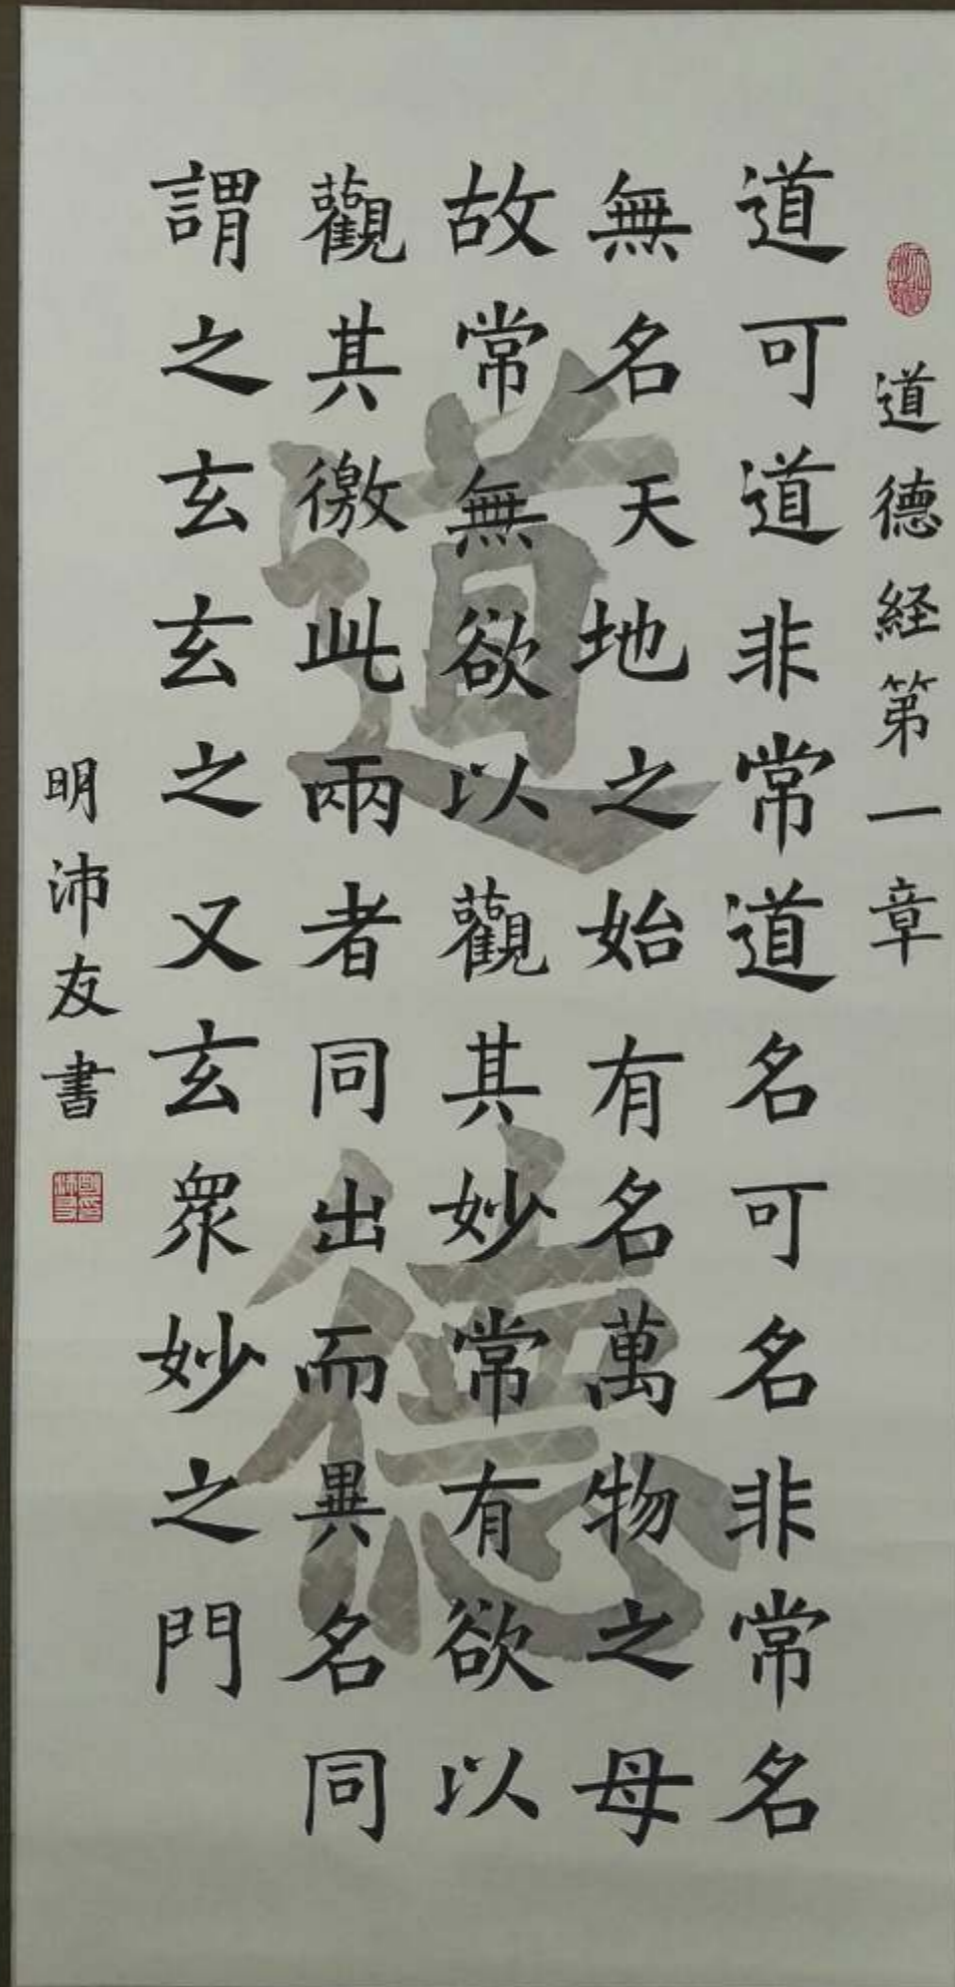 道德経第一章
道可道非常道名可名非常名
無名天地之始有名萬物之母
故常無欲以觀其妙常有欲以
觀其徼此兩者同出而異名同
謂之玄玄之又玄衆妙之門
明沛友書
道德